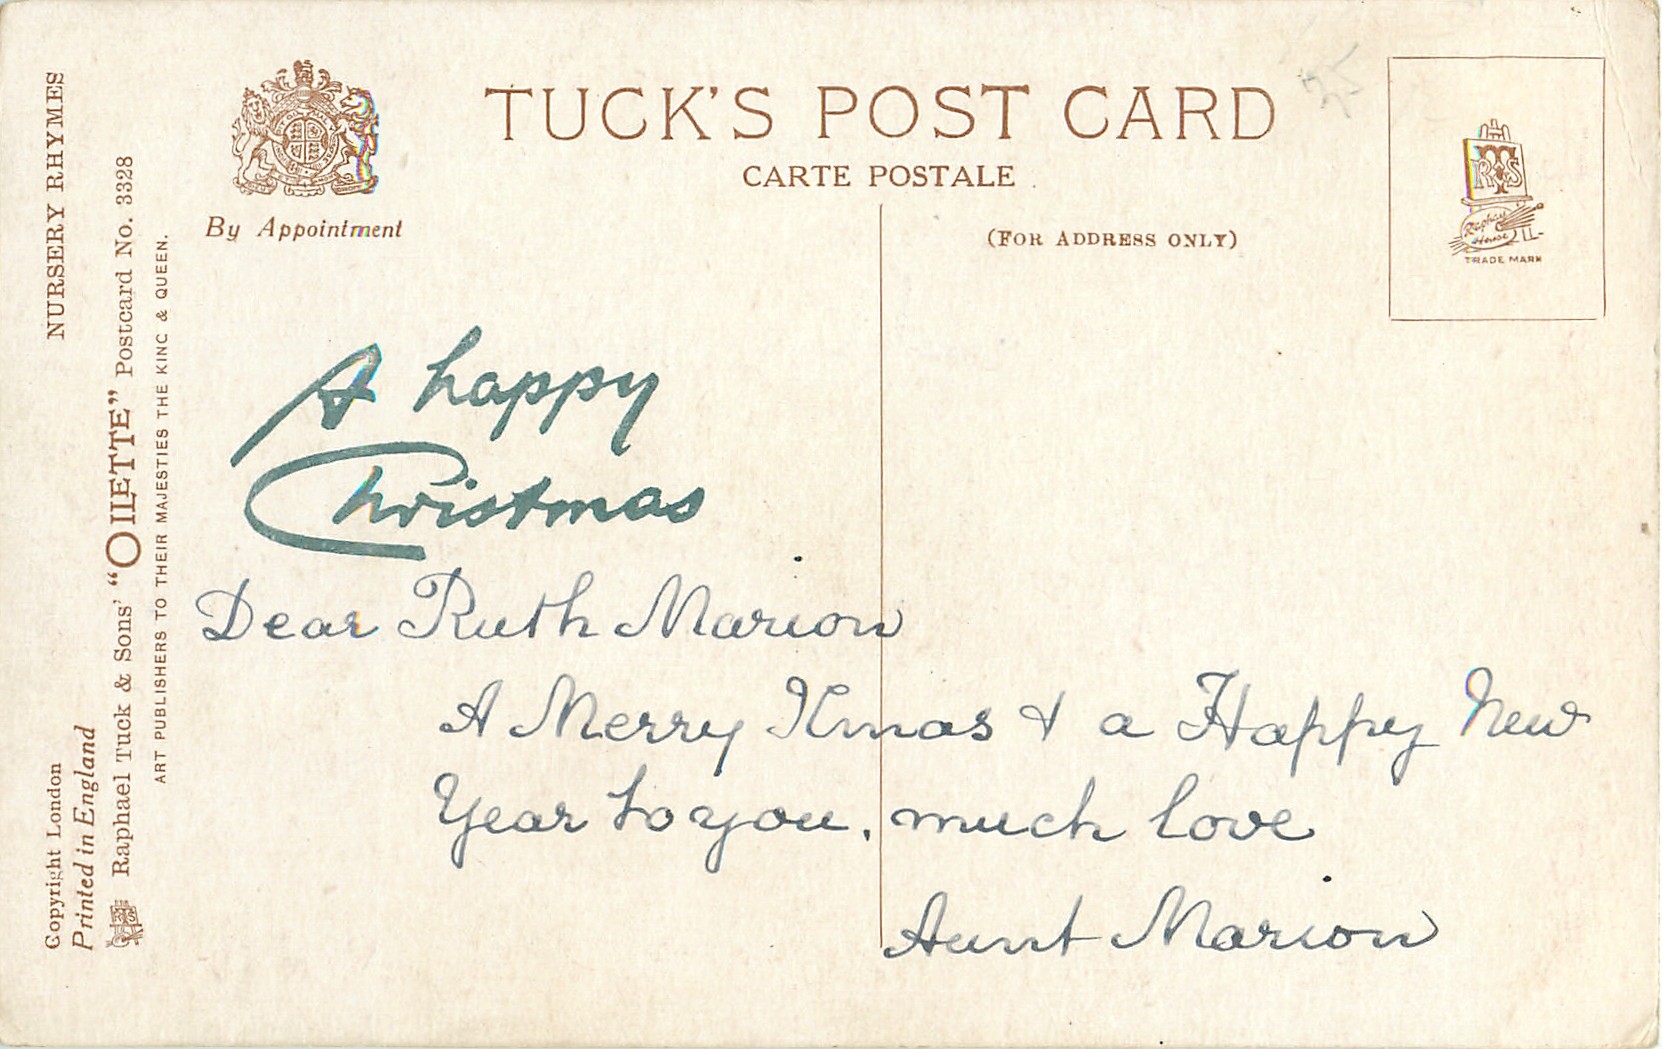 TUCK'S POST CARD
CARTE POSTALE
By Appointment
(FOR ADDRESS ONLY)
RTS
Raphael
House
TRADE MARK
NURSERY RHYMES
Copyright London
Printed in England
Raphael Tuck & Sons' "OILETTE" Postcard No. 3328
ART PUBLISHERS TO THEIR MAJESTIES THE KING & QUEEN.
A happy
Christmas
Dear Ruth Marion
A Merry Xmas & a Happy New
Year to you, much love
Aunt Marion